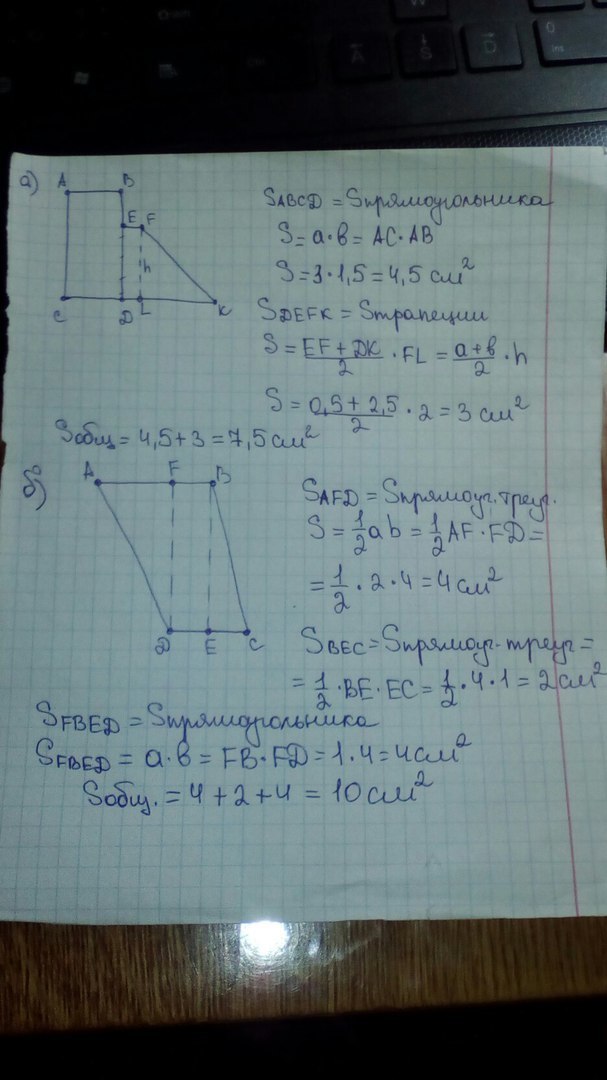 а)
A B
E F
h
C D L K
SABCD = Sпрямоугольника
S = a·в = AC·AB
S = 3·1,5 = 4,5 см²
SDEFK = Sтрапеции
S = EF + DK / 2 · FL = a+в / 2 · h
S = 0,5 + 2,5 / 2 · 2 = 3 см²
Sобщ = 4,5 + 3 = 7,5 см²
б)
A F B
D E C
SAFD = Sпрямоуг. треуг.
S = 1/2 ab = 1/2 AF · FD =
= 1/2 · 2 · 4 = 4 см²
SBEC = Sпрямоуг. треуг =
= 1/2 · BE · EC = 1/2 · 4 · 1 = 2 см²
SFBED = Sпрямоугольника
SFBED = a·в = FB·FD = 1·4 = 4 см²
Sобщ. = 4 + 2 + 4 = 10 см²